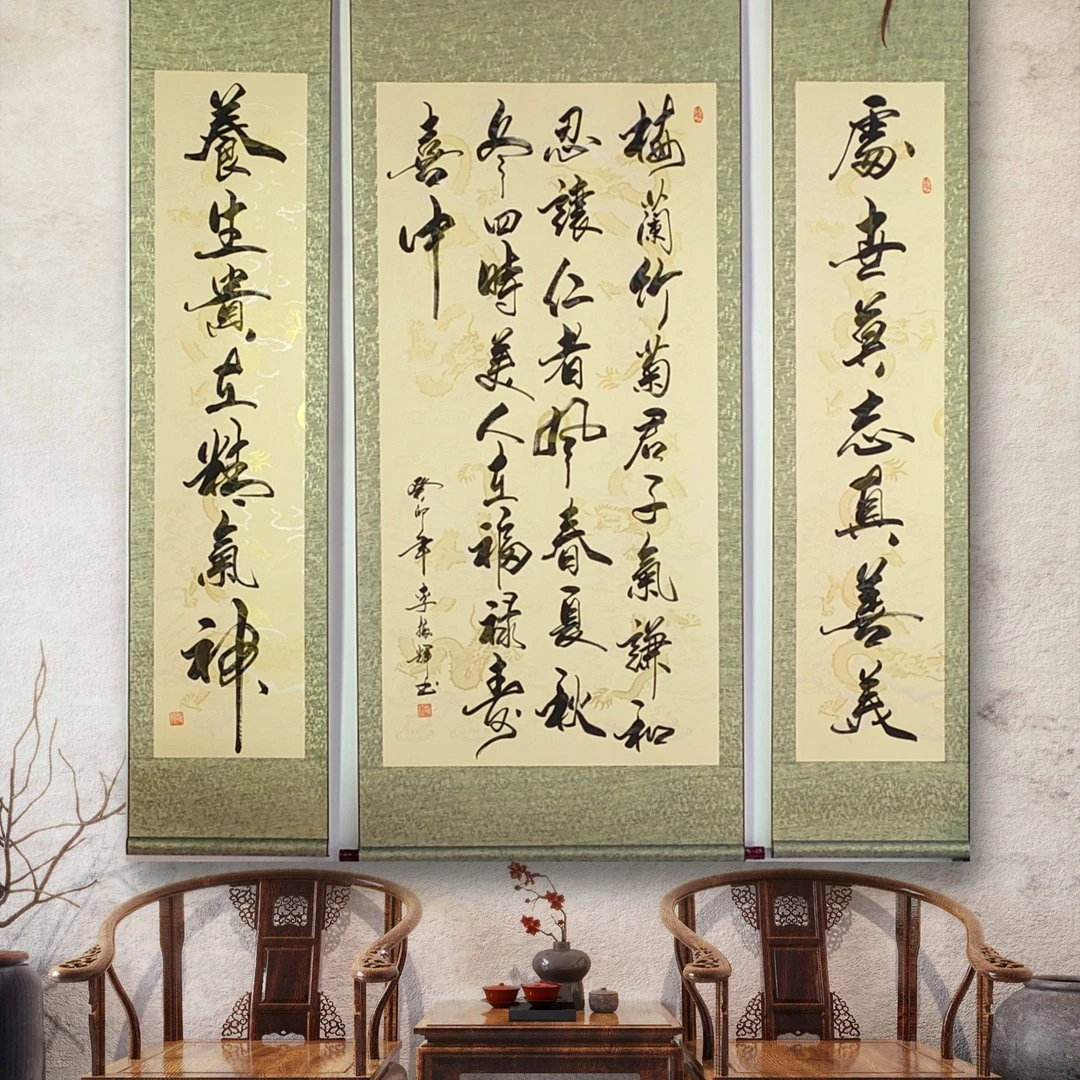 處世莫忘真善美
梅蘭竹菊君子氣謙和
忍讓仁者風春夏秋
冬四時美人在福禄壽
喜中
癸卯年李振輝书
養生貴在精氣神